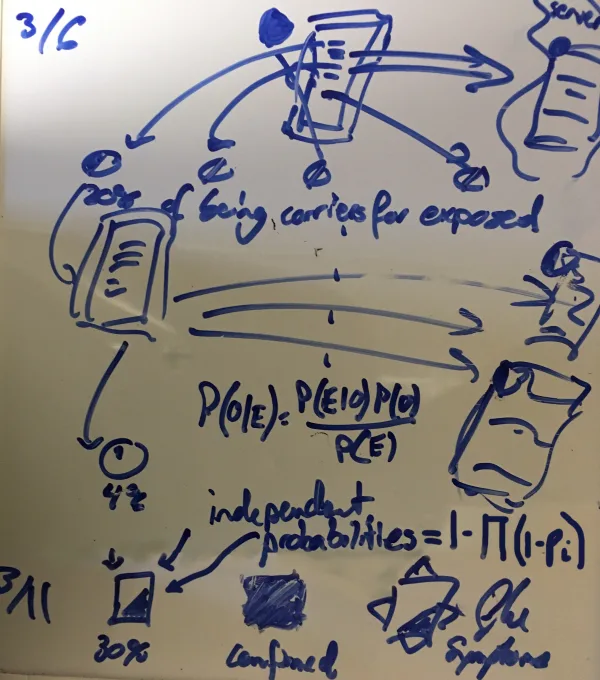 3/6
server
20% of being carriers for exposed
P(O|E) = P(E|O)P(O)
P(E)
4%
independent
probabilities = 1 - Π(1-Pi)
3/11
30%
confirmed
symptoms